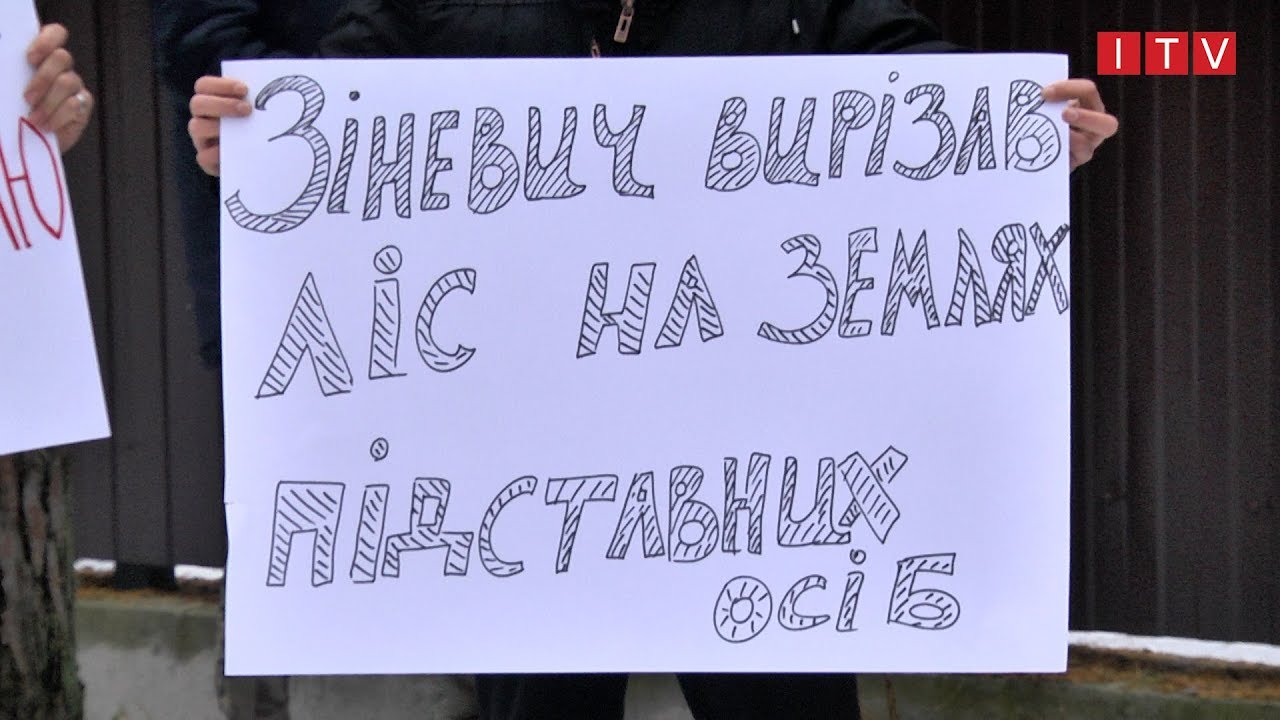 ITV
ЗІНЕВИЧ ВИРІЗАВ
ЛІС НА ЗЕМЛЯХ
ПІДСТАВНИХ
ОСІБ